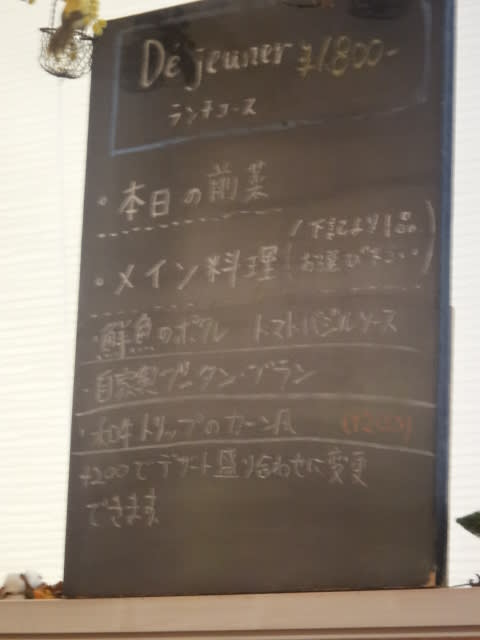 Déjeuner ¥1800-
ランチコース
・本日の前菜
・メイン料理 (下記より1品
お選び下さい)
・鮮魚のポワレ トマトバジルソース
・自家製ブータン・ブラン
・和牛トリップのカーン風
+200でデザート盛り合わせに変更
できます